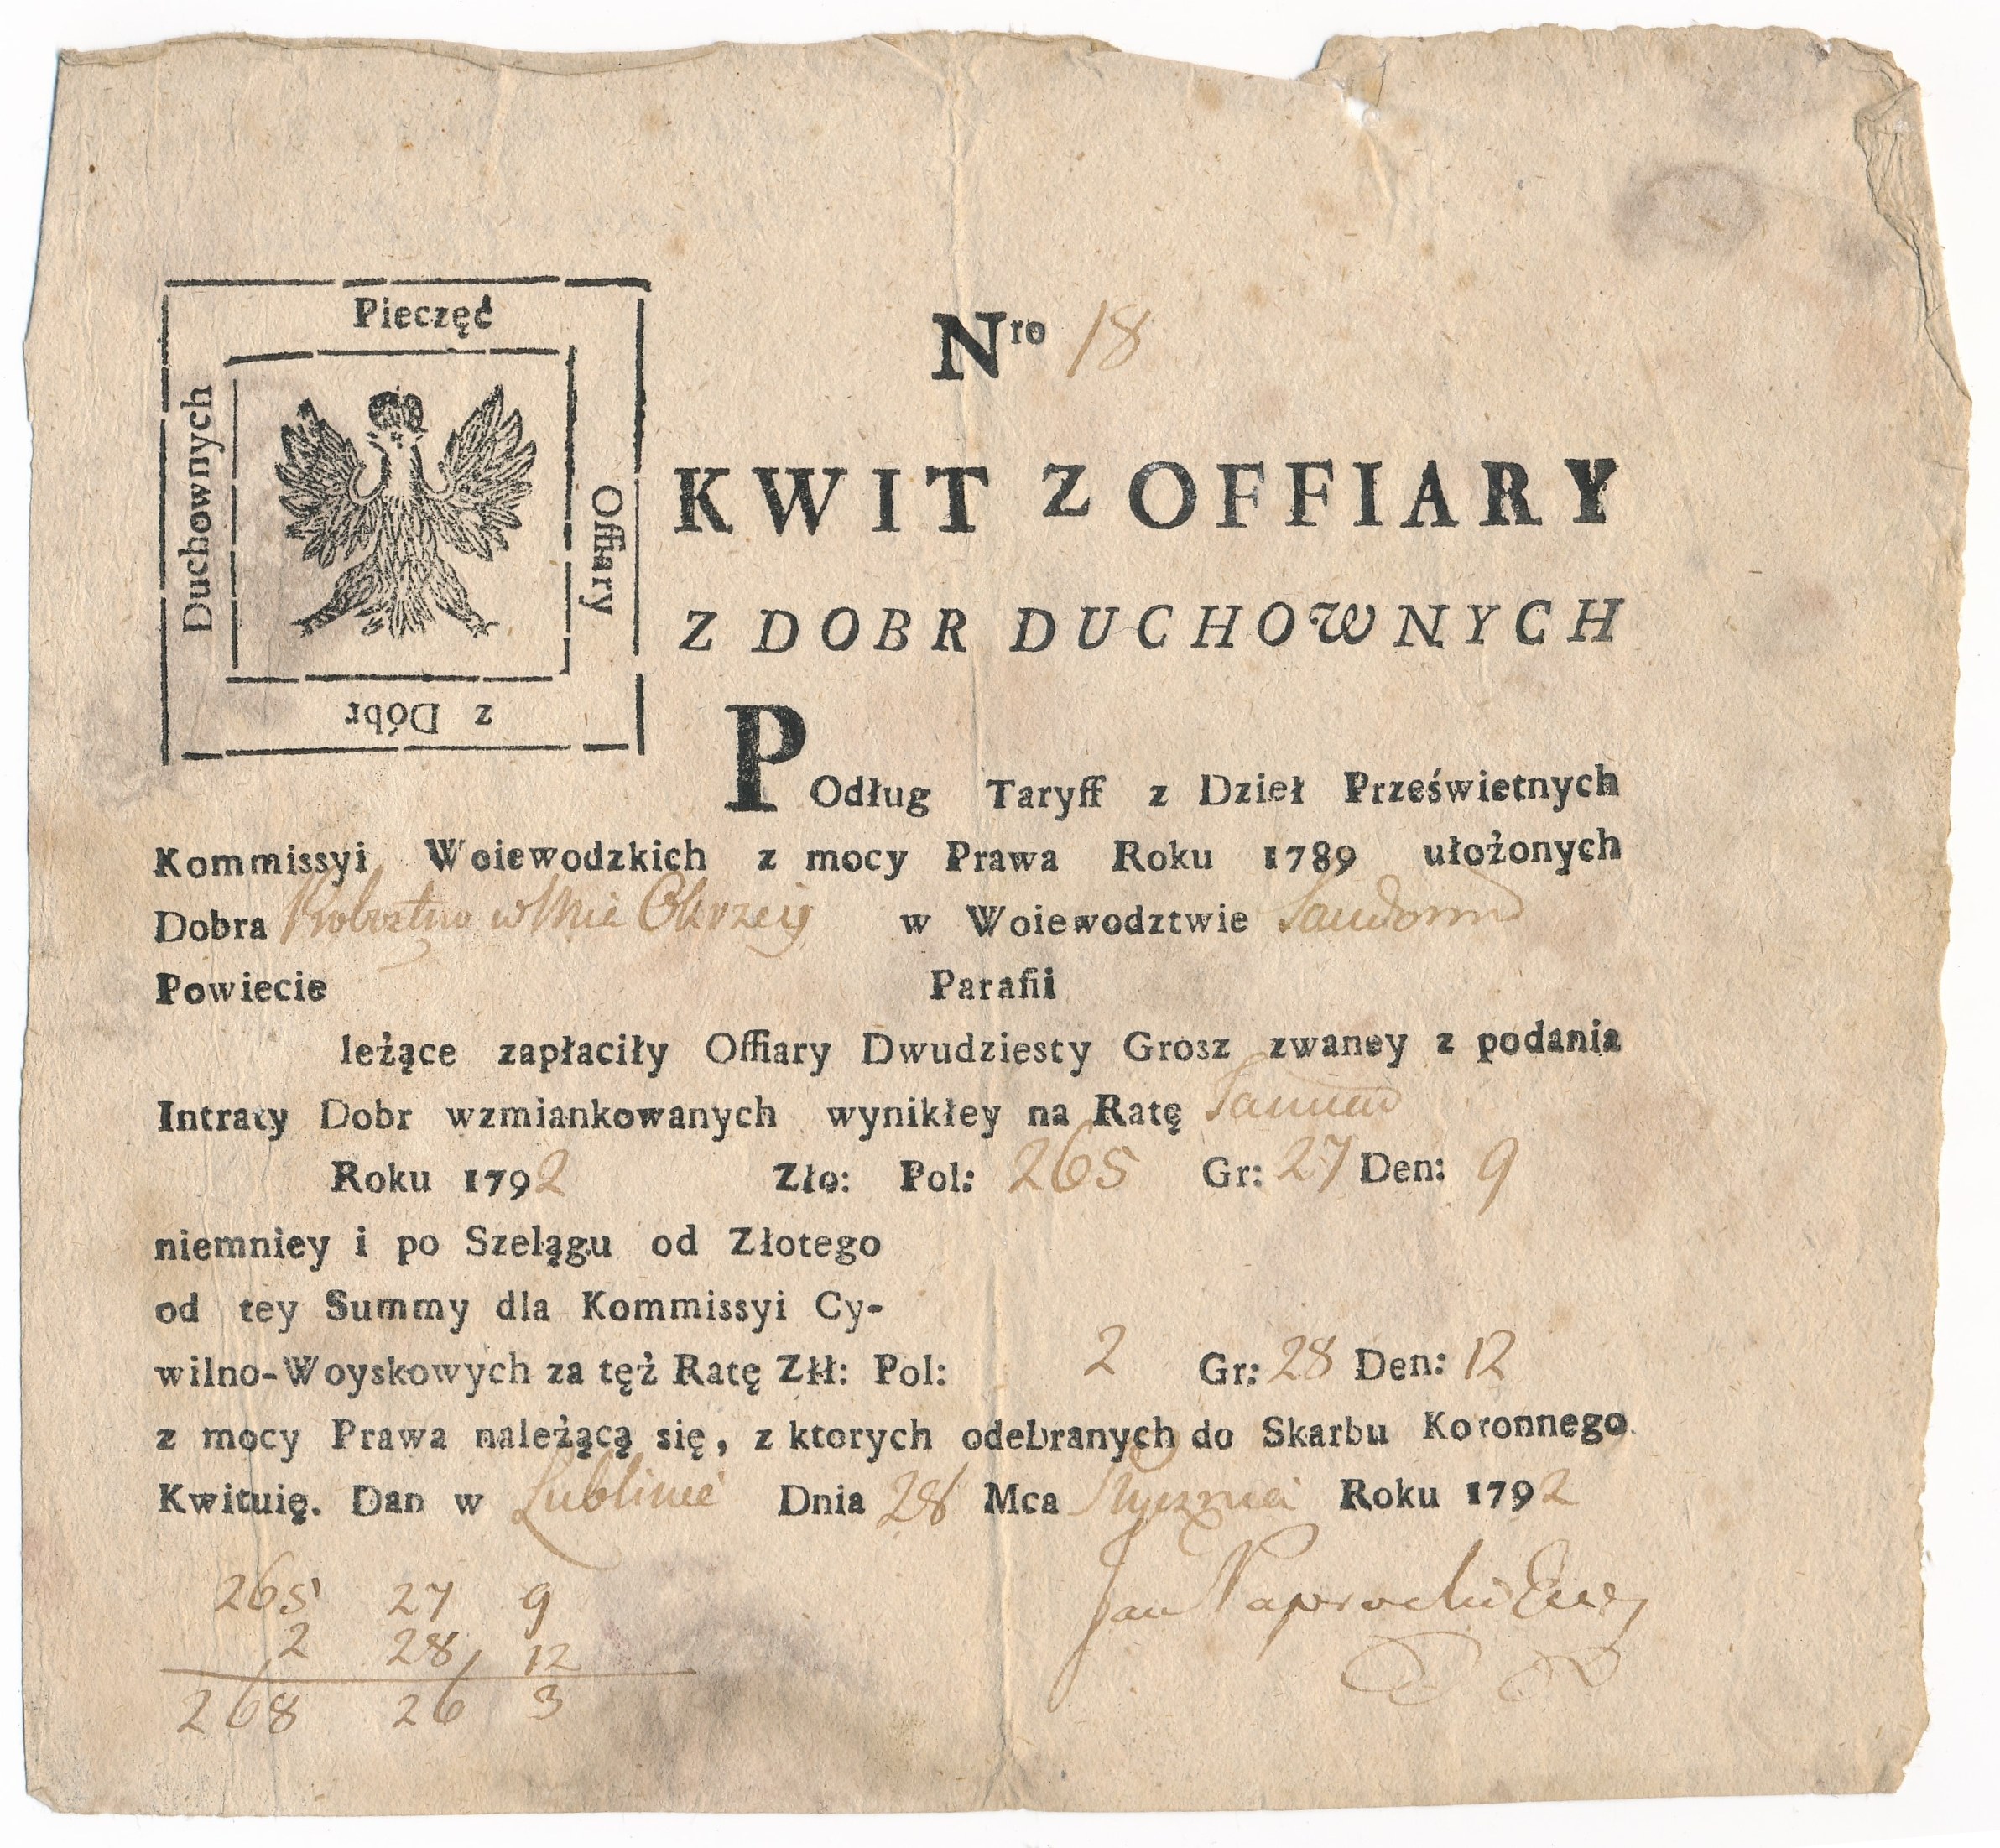 Pieczęć
Offiary
z Dóbr
Duchownych
Nro 18
KWIT Z OFFIARY
Z DOBR DUCHOWNYCH
POdług Taryff z Dzieł Prześwietnych
Kommissyi Woiewodzkich z mocy Prawa Roku 1789 ułożonych
Dobra w Wsie Okrzeię w Woiewodztwie Sandom
Powiecie Parafii
leżące zapłaciły Offiary Dwudziesty Grosz zwaney z podania
Intraty Dobr wzmiankowanych wynikłey na Ratę
Roku 1792 Zło: Pol: 265 Gr: 27 Den: 9
niemniey i po Szelągu od Złotego
od tey Summy dla Kommissyi Cy-
wilno-Woyskowych za tęż Ratę Złł: Pol: 2 Gr: 28 Den: 12
z mocy Prawa należącą się, z ktorych odebranych do Skarbu Koronnego
Kwituię. Dan w Lublinie Dnia 28 Mca Stycznia Roku 1792
265 27 9
2 28 12
268 26 3
Jan Paprocki